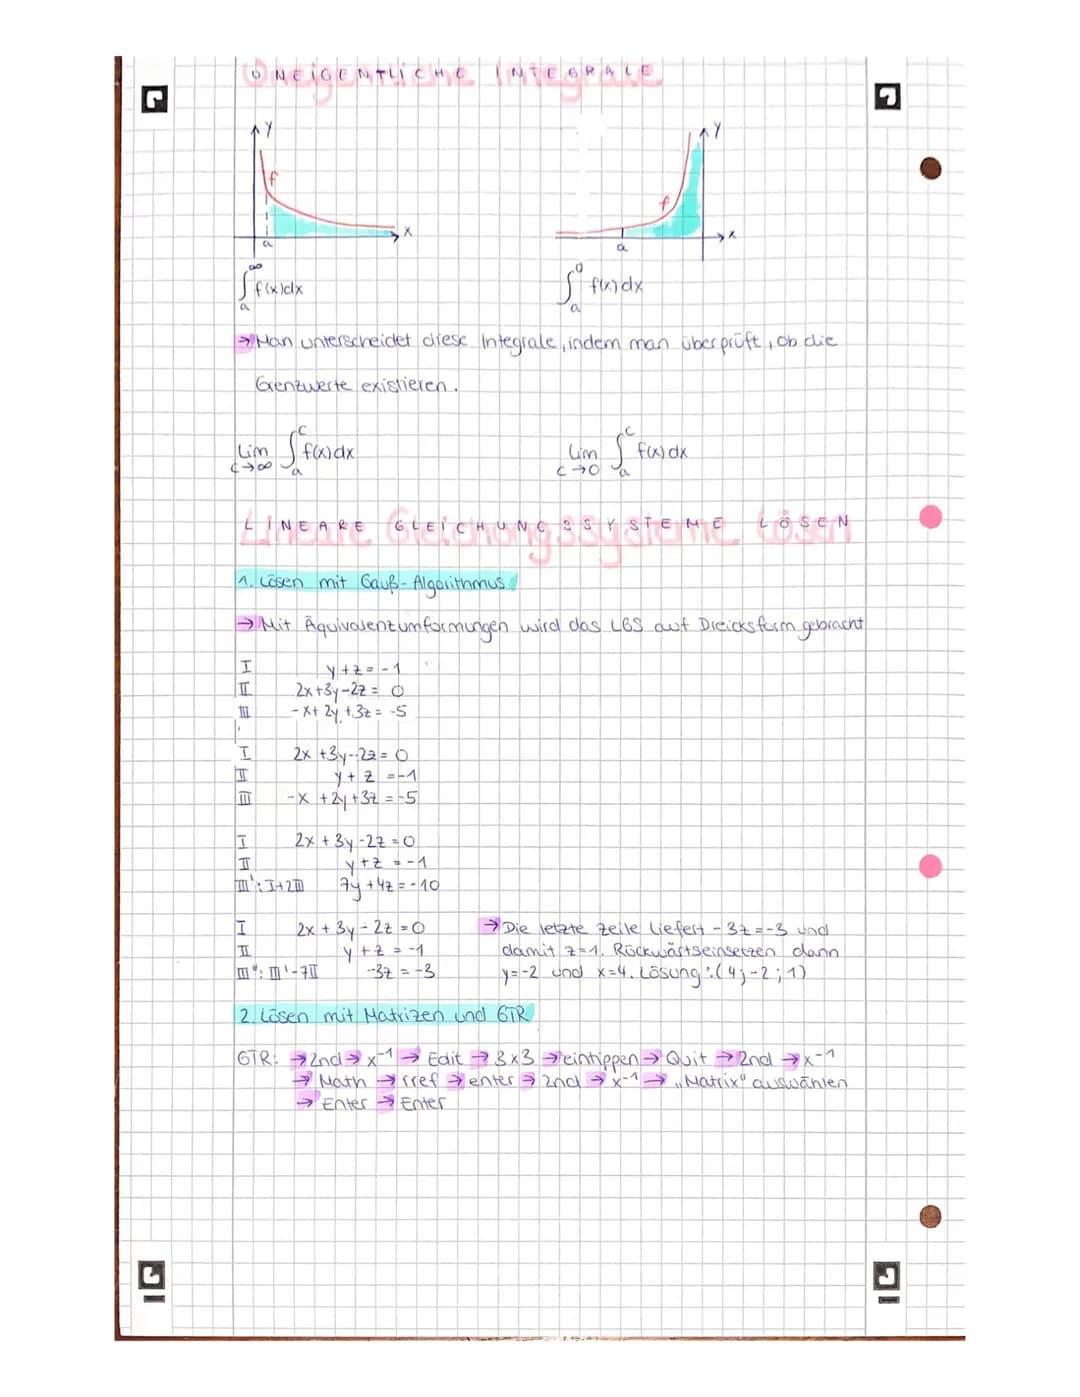 UNEIGENTLICHE INTEGRALE
y y
f f
a x a x
∫ₐ^∞ f(x)dx ∫ₐ^0 f(x)dx
→ Man unterscheidet diese Integrale, indem man überprüft, ob die
Genzwerte existieren.
lim c→∞ ∫ₐ^c f(x)dx lim c→0 ∫ₐ^c f(x)dx
LINEARE GLEICHUNGSSYSTEME LÖSEN
1. Lösen mit Gauß-Algorithmus
→ Mit Äquivalentumformungen wird das LGS auf Dreicksform gebracht
I y+z=-1
II 2x+3y-2z= 0
III -x+2y+3z= -5
I 2x+3y-2z=0
II y+z=-1
III -x+2y+3z=-5
I 2x+3y-2z=0
II y+z=-1
III': I+2III 7y+4z=-10
I 2x+3y-2z=0
II y+z=-1
III'': III'-7II -3z=-3
→ Die letzte Zeile liefert -3z=-3 und
damit z=1. Rückwärtseinsetzen dann
y=-2 und x=4. Lösung:(4;-2;1)
2. Lösen mit Matrizen und GTR
GTR: → 2nd → x⁻¹ → Edit → 3x3 → eintippen → Quit → 2nd → x⁻¹
→ Math → rref → enter → 2nd → x⁻¹ → „Matrix" auswählen
→ Enter → Enter